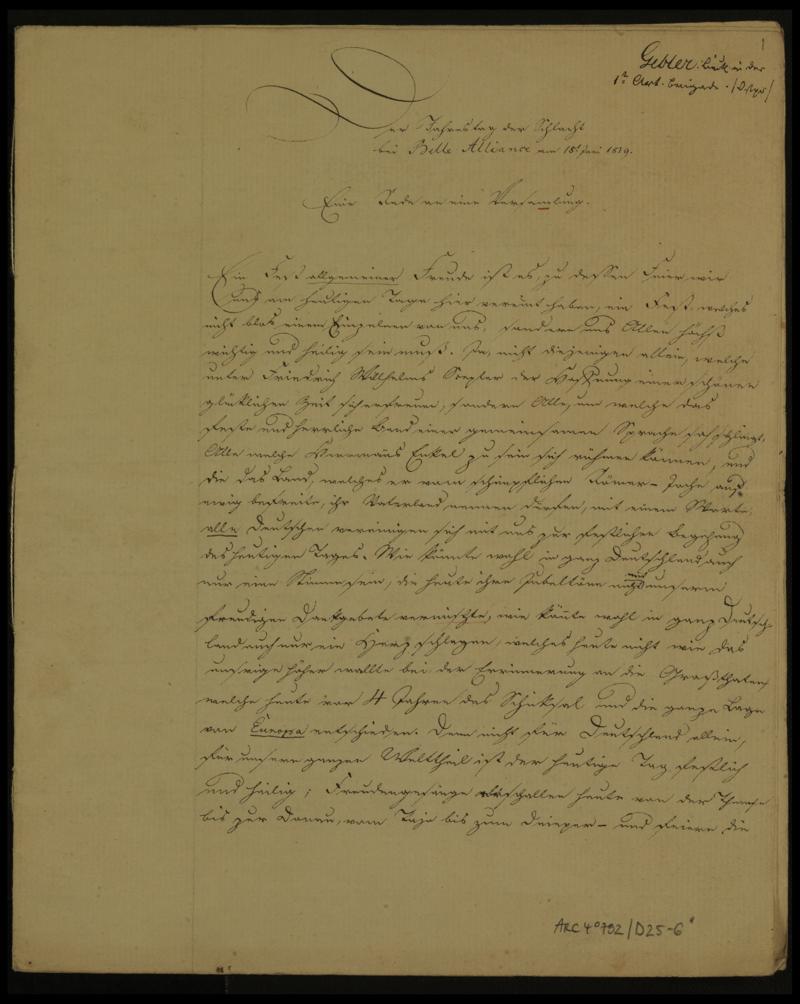 1
Gebler. Lieut. in der
1n Art. Brigade.
Der Jahrestag der Schlacht
bei Belle Alliance am 18t Juni 1819.
Eine Rede an eine Versamlung.
Ein Fest allgemeiner Freude ist es, zu dessen Feier wir
uns am heutigen Tage hier vereint haben, ein Fest, welches
nicht blos einem Einzelnen von uns, sondern uns Allen höchst
wichtig und heilig sein muß. Ja, nicht diejenigen allein, welche
unter Friedrich Wilhelms Scepter der Hoffnung einer schönen
glücklichen Zeit sich erfreun, sondern Alle, um welche das
feste und herrliche Band einer gemeinsamen Sprache sich schlingt,
Alle welche Herrmanns Enkel zu sein sich rühmen können, und
die das Land, welches er vom schimpflichen Römer-Joche auf
ewig befreite, ihr Vaterland nennen dürfen, mit einem Worte,
alle Deutschen vereinigen sich mit uns zur festlichen Begehung
des heutigen Tages. Wie könnte wohl in ganz Deutschland auch
nur eine Stimme sein, die heute ihre Jubeltöne nicht mit unserm
freudigen Dankgebete vermischte, wie könte wohl in ganz Deutsch-
land auch nur ein Herz schlagen, welches heute nicht wie das
unsrige höher wallte bei der Errinnerung an die Großthaten,
welche heute vor 4 Jahren das Schicksal und die ganze Lage
von Europa entschieden. Denn nicht für Deutschland allein,
für unsern ganzen Welttheil ist der heutige Tag festlich
und heilig; Freudengesänge erschallen heute von der Themse
bis zur Donau, vom Tajo bis zum Dnieper – und feiern die
ARC 4° 792/D25-6